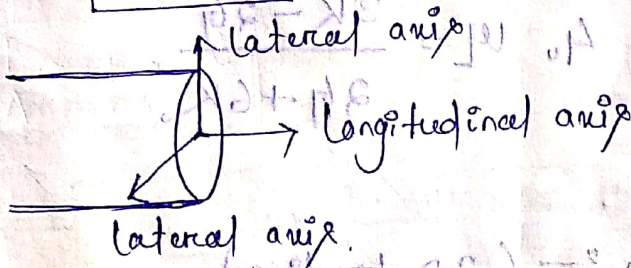 lateral axis
longitudinal axis
lateral axis.